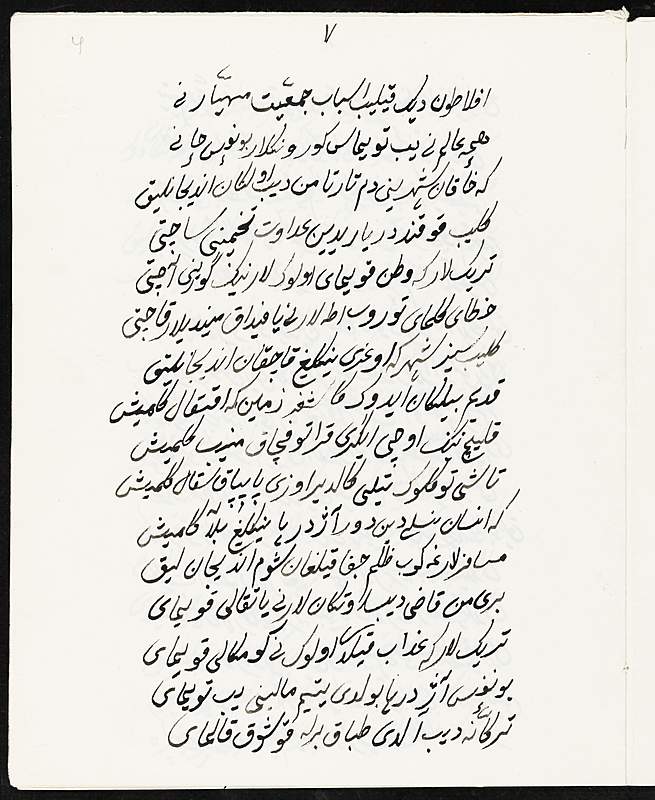 ۷
افلاطون دیک قیلیب اسباب جمعیت مهیا رنی
همه عالم نی یب تویماس کور ونکلار بو نفس جانی
که خاقان شهرینی دم تارتامن دیب اولکان اندیجانلیق
کلیب قوقند دریاریدین عداوت تخمینی ساچتی
تریک لارکه وطن قویمای اولوک لارنیک گورینی آچتی
خطای کلمای توروب اطه لارنی یافینداق میندیلار قاچتی
کلیب سیز شهرکه اوغری ینکلیغ قاچقان اندیجانلیق
قدیم بیلکان ایدوک کاشغر زمین که اقتقال کلمیش
قلیچ نیک اوچی ایکری قرا توقچاق مینیب کلمیش
تاشی توکلوک تیلی کالدیر اوزی پایپاق سقال کلمیش
که انسان نسلی دین دور آژدرها ینکلیغ بلا کلمیش
مسافرلارغه کوب ظلم جفا قیلغان شوم اندیجان لیق
بری من قاضی دیب اوتکان لارنی یاتقالی قویمای
تریک لارکه عذاب قیلدی اولوک نی کومکالی قویمای
بو نفس آژدرها بولدی یتیم مالینی یب تویمای
ترکانه دیب آلدی طباق برله قوشوق قالمای